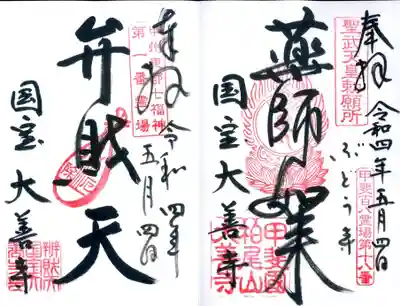 奉拝
聖武天皇勅願所
令和四年五月四日
ぶどう寺
甲斐百八霊場第十八番
薬師如来
甲斐国
柏尾山
大善寺
国宝 大善寺
奉拝
甲州東郡七福神
第一番霊場
令和四年
五月四日
弁財天
国宝 大善寺